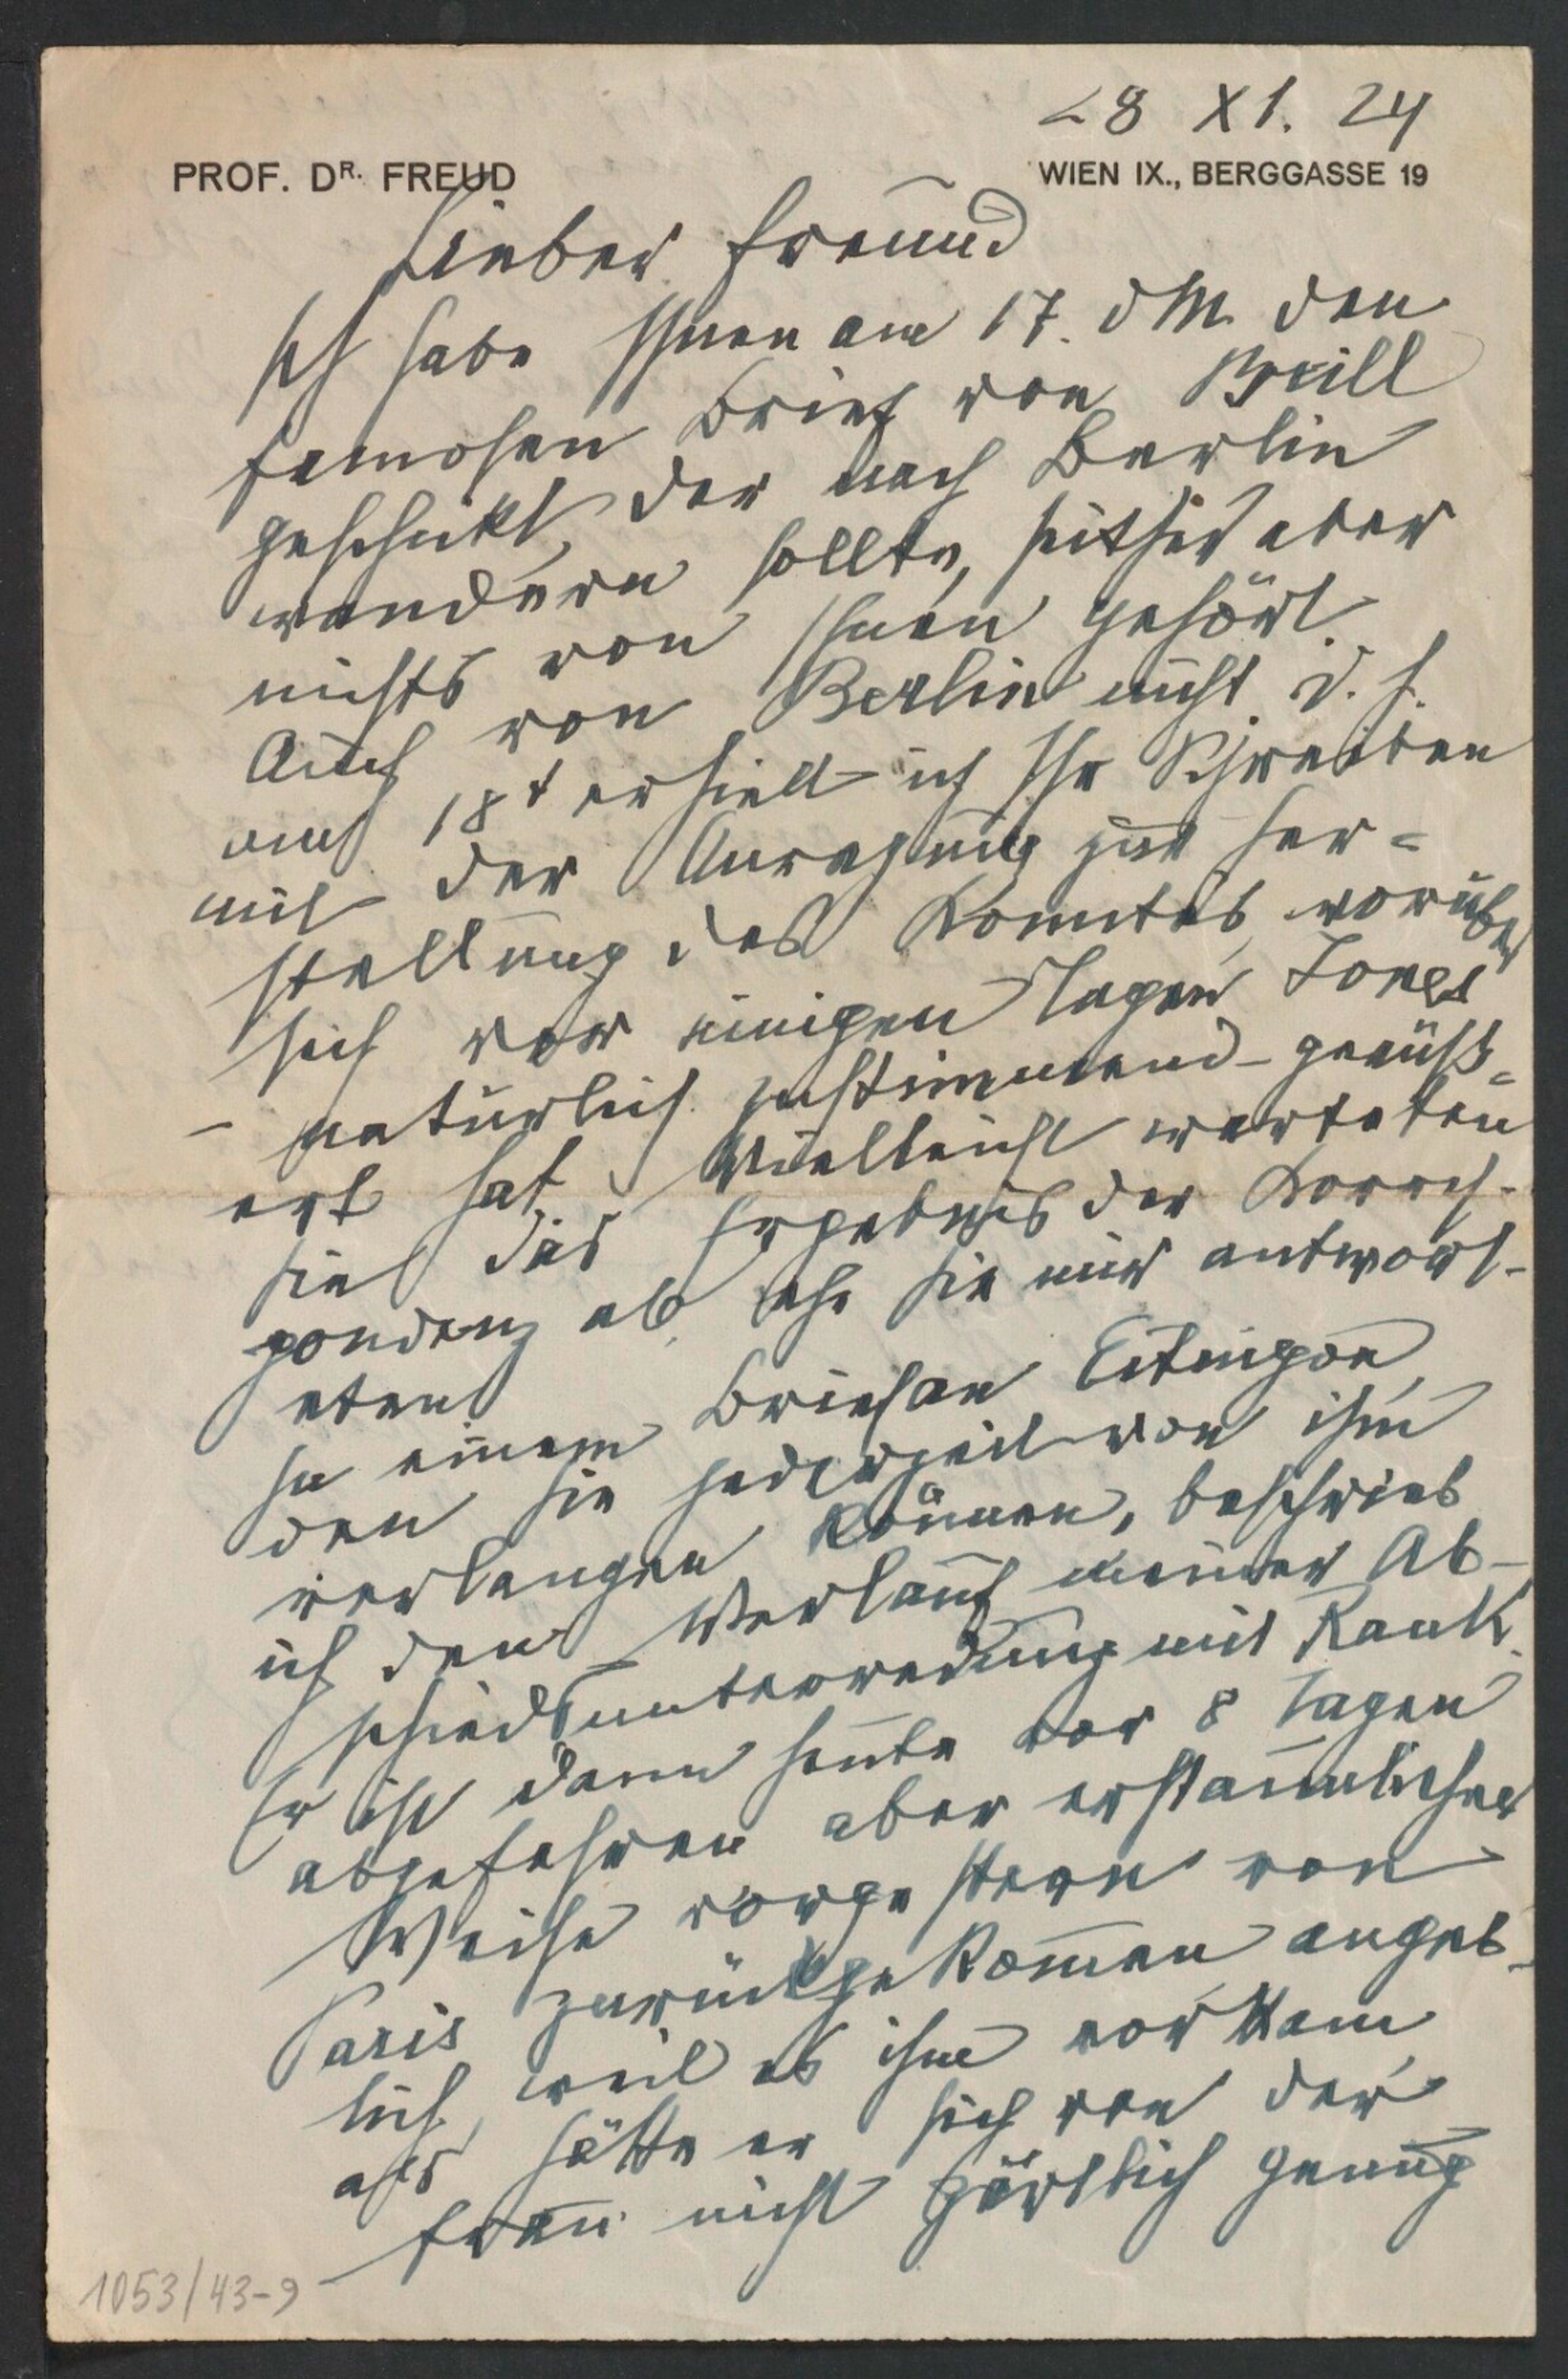 28 XI. 24
PROF. DR. FREUD
WIEN IX., BERGGASSE 19
Lieber Freund
Ich habe Ihnen am 17. d M. den
famosen Brief von Brill
geschickt, der nach Berlin
wandern sollte, seither aber
nichts von Ihnen gehört.
Auch von Berlin nicht d. h.
am 18t erhielt ich Ihr Schreiben
mit der Anregung zur Her=
stellung des Komites, worüber
sich vor einigen Tagen Jones
– natürlich zustimmend – geäuß=
ert hat. Vielleicht warteten
Sie das Ergebnis der Korres-
pondenz ab, ehe Sie mir antwort-
eten
In einem Brief an Eitingon,
den Sie jederzeit von ihm
verlangen können, beschrieb
ich den Verlauf meiner Ab-
schiedsunterredung mit Rank.
Er ist dann heute vor 8 Tagen
abgefahren aber erstaunlicher
Weise vorgestern von
Paris zurückgekommen angeb-
lich, weil es ihm vorkam
als hätte er sich von der
Frau nicht zärtlich genug
1053/43-9